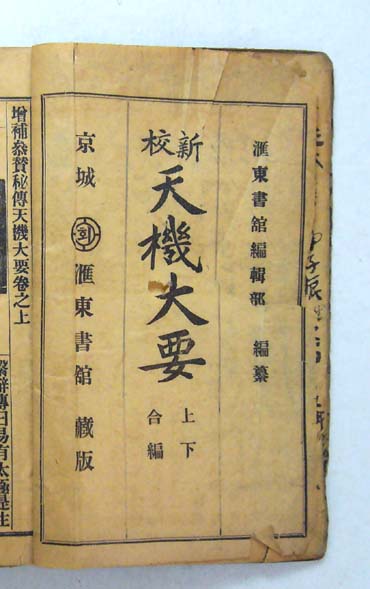 滙東書舘編輯部 編纂
新校
天機大要
上下
合編
京城 회 滙東書舘 藏版
增補叅賛秘傳天機大要卷之上
辭傳曰易有太極是生